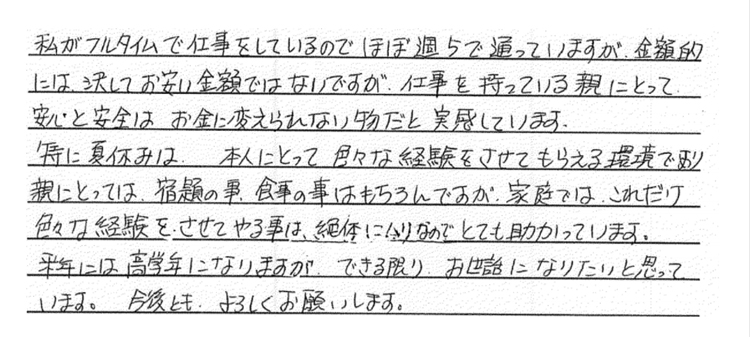 私がフルタイムで仕事をしているのでほぼ週5で通っていますが、金額的
には、決してお安い金額ではないですが、仕事を持っている親にとって
安心と安全は お金に変えられない物だと実感しています。
特に夏休みは、 本人にとって色々な経験をさせてもらえる環境であり
親にとっては、宿題の事、食事の事はもちろんですが、家庭では、これだけ
色々な経験をさせてやる事は、絶体にムリなのでとても助かっています。
来年には高学年になりますが、できる限り、お世話になりたいと思って
います。 今後とも、よろしくお願いします。